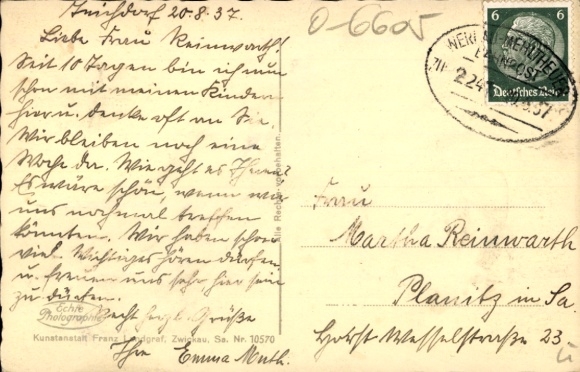 20.8.37.
Liebe Frau Reinwarth!
Seit 10 Tagen bin ich nun
schon mit meinen Kindern
hier u. denke oft an Sie.
Wir bleiben noch eine
Woche da. Wie geht es Ihnen?
Es wäre schön, wenn wir
uns nochmal treffen
könnten. Wir haben schon
viel Wichtiges hören dürfen
u. freuen uns sehr hier sein
zu dürfen.
Recht herzl. Grüße
Ihre Emma Muth.
Echte
Photographie
Kunstanstalt Franz Landgraf, Zwickau, Sa. Nr. 10570
Alle Rechte vorbehalten.
0-6605
6 6
Deutsches Reich
BAHNPOST
Frau
Martha Reinwarth
Planitz in Sa.
Horst Wesselstraße 23